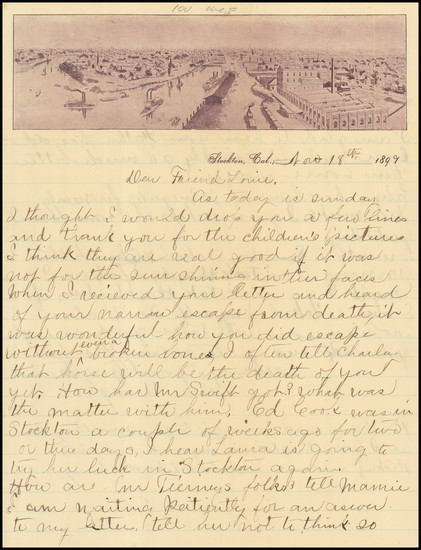 Stockton, Cal., Nov 18th 1899
Dear Friend Louie.
As today is sunday
I thought I would drop you a few lines
and thank you for the children's pictures
I think they are real good if it was
not for the sun shining in their faces
When I recieved your letter and heard
of your narrow escape from death, it
was wonderful how you did escape
without even a broken bones, I often tell Charley
that horse will be the death of you
yet. How has Mr Swift got? What was
the matter with him. Ed Cook was in
Stockton a couple of weeks ago for two
or three days, I hear Laura is going to
try her luck in Stockton again.
How are Mr Tierneys folks tell Mamie
I am waiting Patiently for an answer
to my letter, tell her not to think so